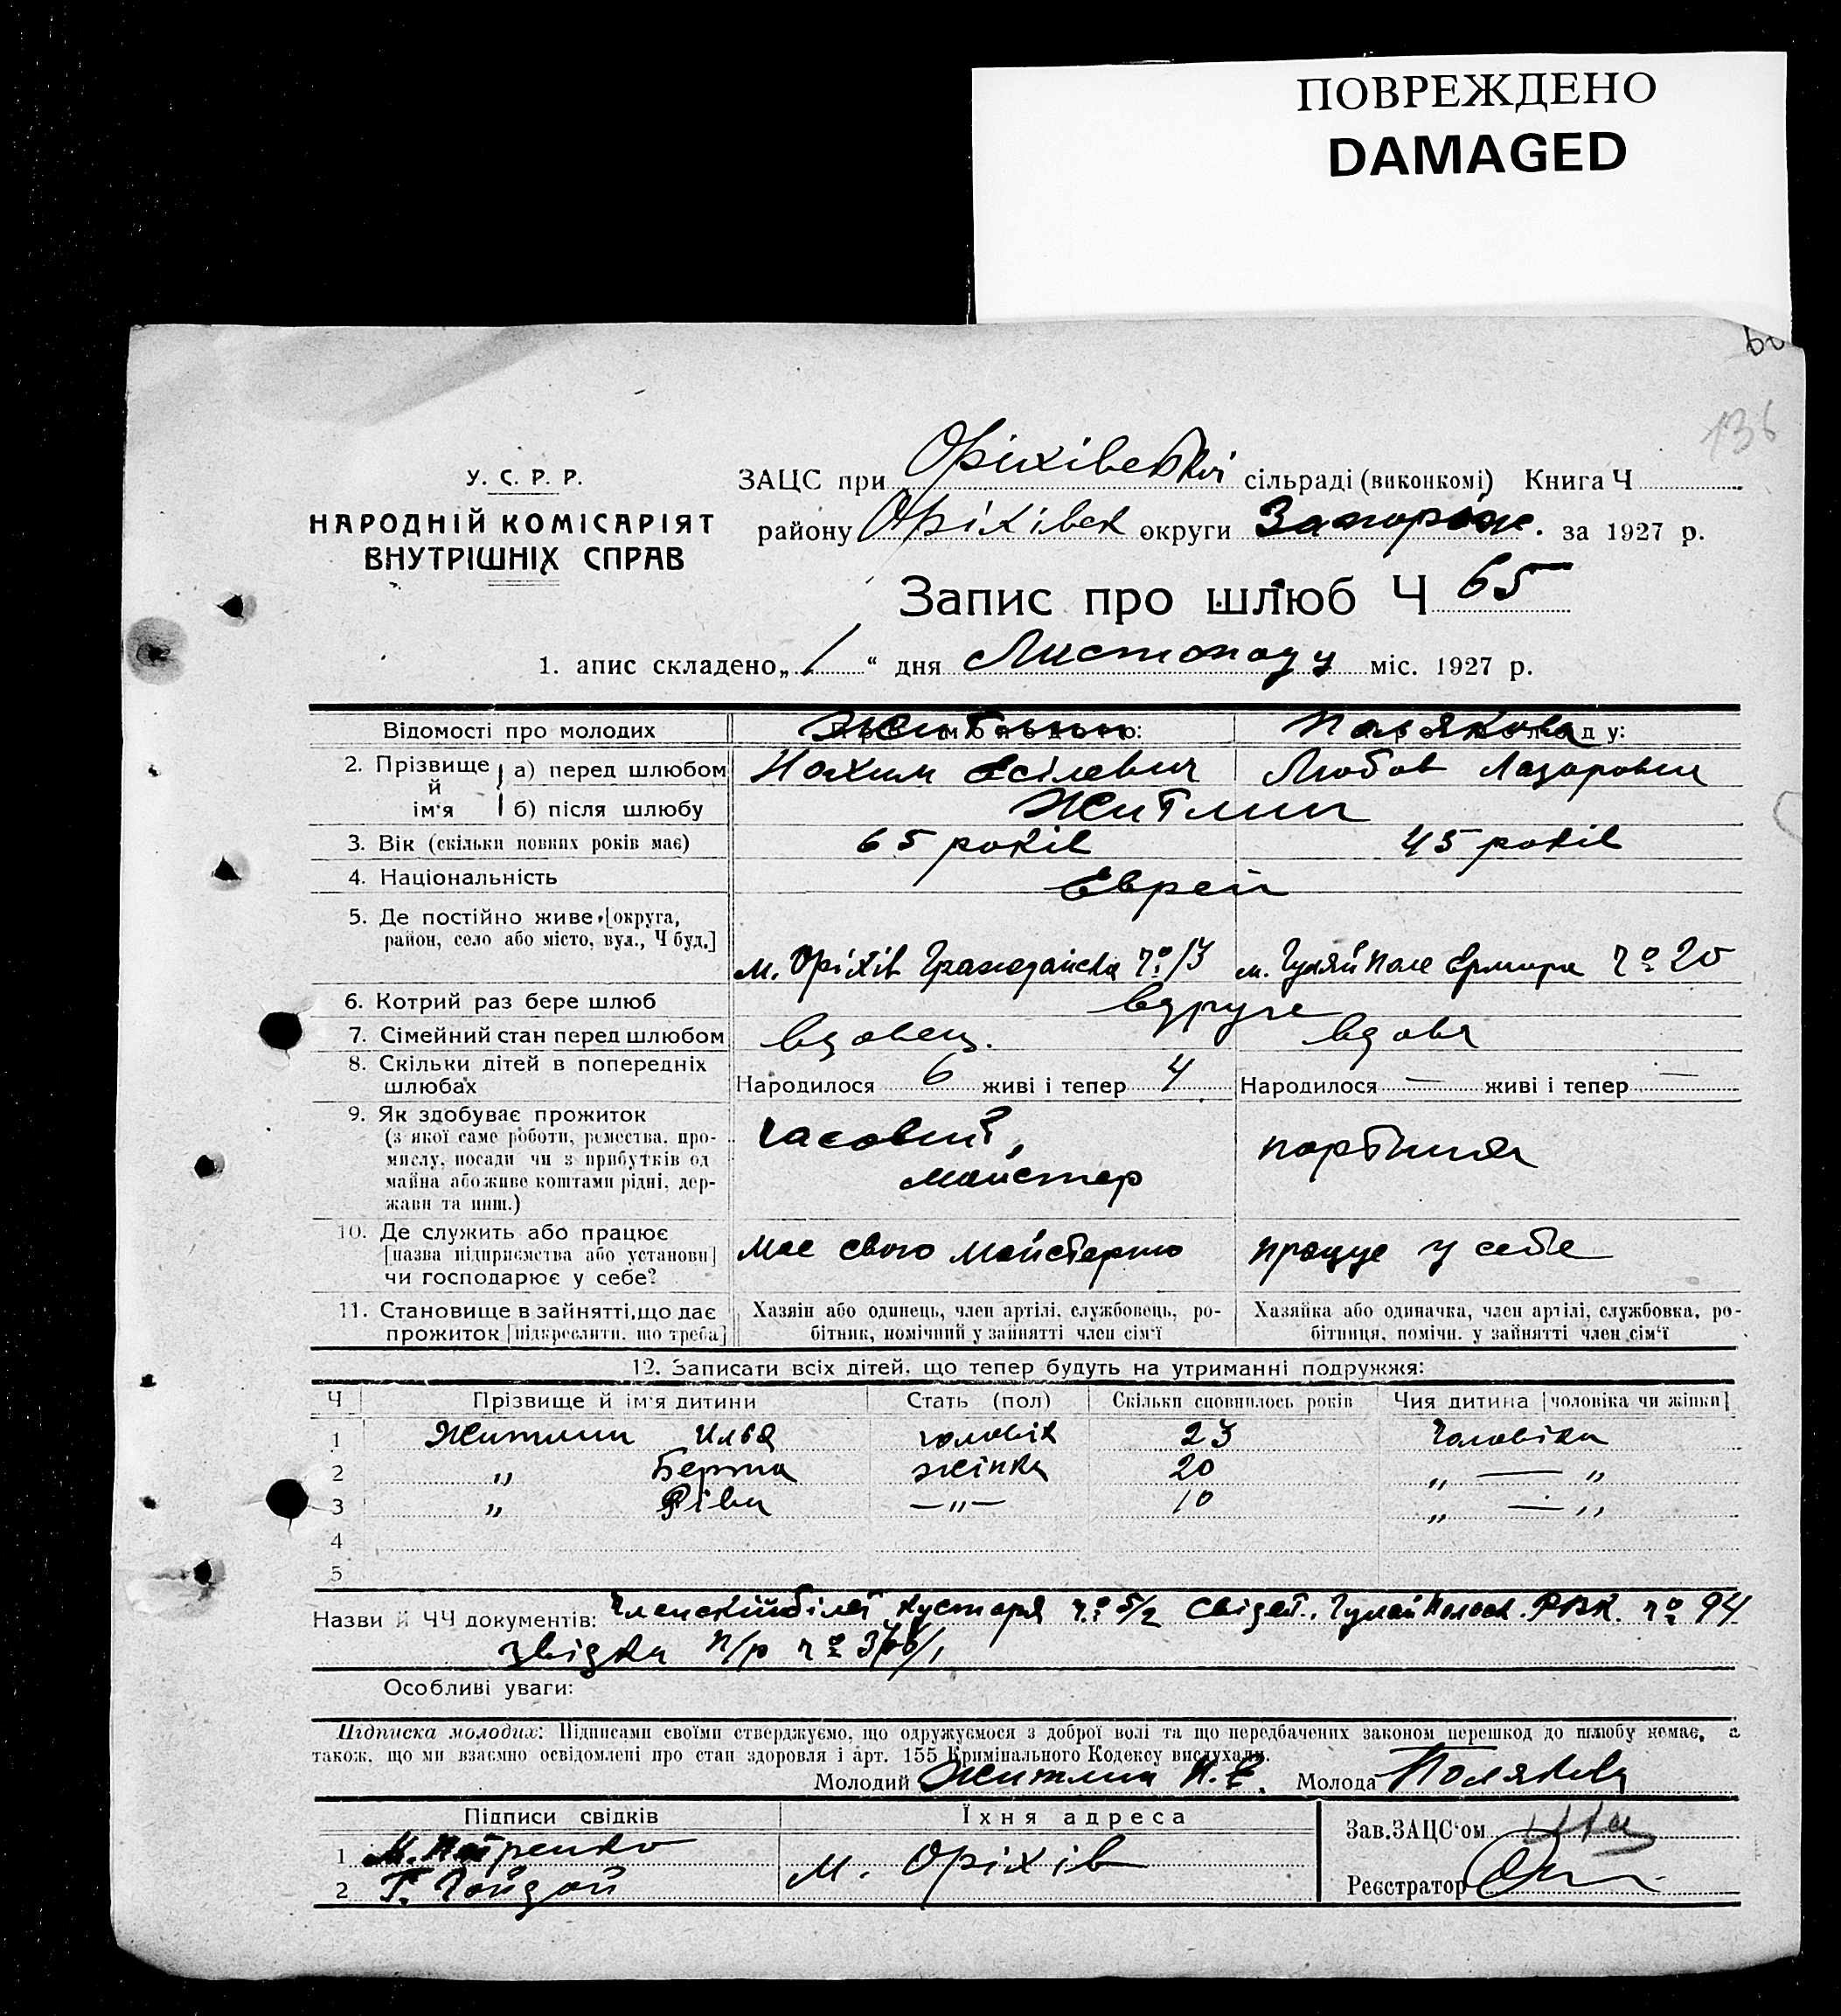 ПОВРЕЖДЕНО
DAMAGED
136
У. С. Р. Р.
НАРОДНІЙ КОМІСАРІЯТ
ВНУТРІШНІХ СПРАВ
ЗАЦС при Оріхівській сільраді (виконкомі) Книга Ч
району Оріхівск округи Запоріж. за 1927 р.
Запис про шлюб Ч 65
1. апис складено „1“ дня Листопаду міс. 1927 р.
Відомості про молодих Житлин Полякова
2. Прізвище й ім'я а) перед шлюбом Нохим Єсілевич Любов Лазаровна
б) після шлюбу Житлин
3. Вік (скільки повних років має) 65 років 45 років
4. Національність Єврей
5. Де постійно живе [округа,
район, село або місто, вул., Ч буд.]
м. Оріхів Гражданска № 13 м. Гуляй Поле № 20
6. Котрий раз бере шлюб вдруге
7. Сімейний стан перед шлюбом вдовець. вдова
8. Скільки дітей в попередніх
шлюбах Народилося 6 живі і тепер 4 Народилося — живі і тепер —
9. Як здобуває прожиток
(з якої саме роботи, ремества, про-
мислу, посади чи з прибутків од
майна або живе коштами рідні, дер-
жави та инш.)
часовий, майстер портниха
10. Де служить або працює
[назва підприємства або установи]
чи господарює у себе?
Має свою майстерню працує у себе
11. Становище в зайнятті, що дає
прожиток [підкреслити, що треба]
Хазяїн або одинець, член артілі, службовець, ро-
бітник, помічний у зайнятті член сім'ї
Хазяйка або одиначка, член артілі, службовка, ро-
бітниця, помічн. у зайнятті член сім'ї
12. Записати всіх дітей, що тепер будуть на утриманні подружжя:
Ч Прізвище й ім'я дитини Стать (пол) Скільки сповнилось років Чия дитина [чоловіка чи жінки]
1 Житлин Илья чоловік 23 Чоловіка
2 „ Берта жінка 20 „ — „
3 „ Ріва — „ — 10 „ — „
4
5
Назви й ЧЧ документів: Членскій білєт кустаря № 5/2 свідет. Гуляй Полск. РВК. № 94
звідка п/р №
Особливі уваги:
Підписка молодих: Підписами своїми стверджуємо, що одружуємося з доброї волі та що передбачених законом перешкод до шлюбу немає, а
також, що ми взаємно освідомлені про стан здоровля і арт. 155 Кримінального Кодексу вислухали.
Молодий Житлин Н. Є. Молода Полякова
Підписи свідків Їхня адреса Зав. ЗАЦС'ом
1 М. Петренко
м. Оріхів
2 Г. Гайдай
Реєстратор